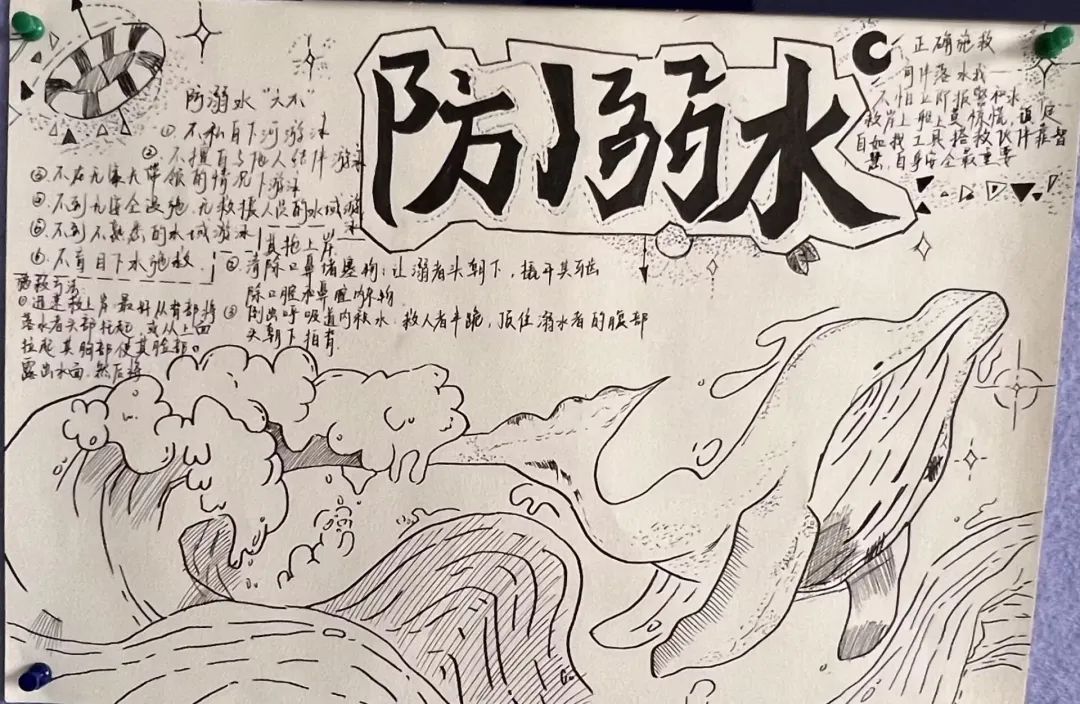 防溺水
防溺水“六不”
①不私自下河游泳
②不擅自与他人结伴游泳
③不在无家长带领的情况下游泳
④不到无安全设施、无救援人员的水域游泳
⑤不到不熟悉的水域游泳
⑥不盲目下水施救
施救方法
①迅速救上岸:最好从背部将
落水者头部托起,或从上面
拉起其胸部使其脸部
露出水面,然后将
其拖上岸
②清除口鼻堵塞物:让溺者头朝下,撬开其牙齿
除口腔和鼻腔内杂物
③倒出呼吸道内积水:救人者半跪,顶住溺水者的腹部
头朝下拍背
正确施救
同伴落水我
不怕立即报警和水
救岸上船上莫慌慌,镇定
自如找工具搭救伙伴靠智
慧,自身安全最重要